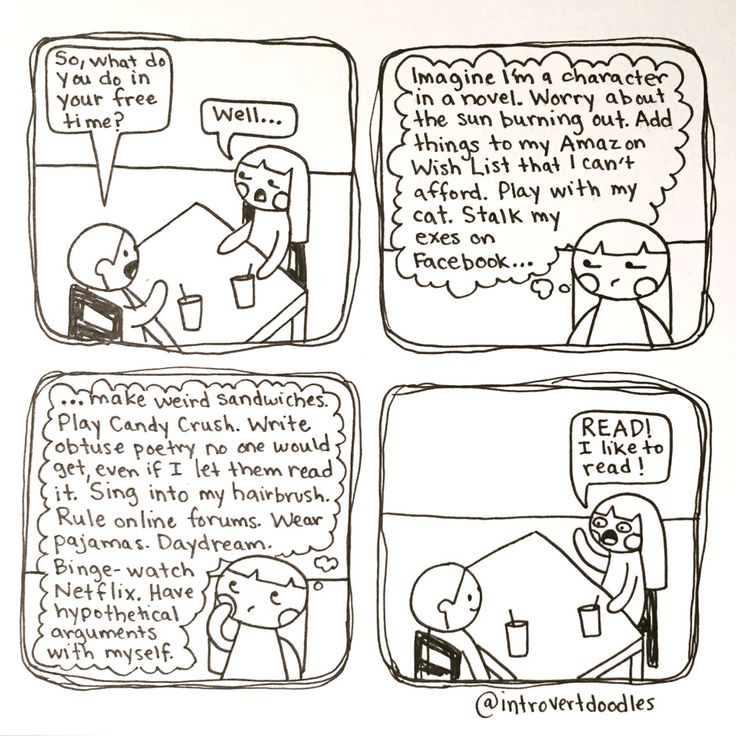 So, what do
you do in
your free
time?
Well...
Imagine I'm a character
in a novel. Worry about
the sun burning out. Add
things to my Amazon
Wish List that I can't
afford. Play with my
cat. Stalk my
exes on
Facebook...
...make weird sandwiches.
Play Candy Crush. Write
obtuse poetry no one would
get, even if I let them read
it. Sing into my hairbrush.
Rule online forums. Wear
pajamas. Daydream.
Binge-watch
Netflix. Have
hypothetical
arguments
with myself.
READ!
I like to
read!
@introvertdoodles